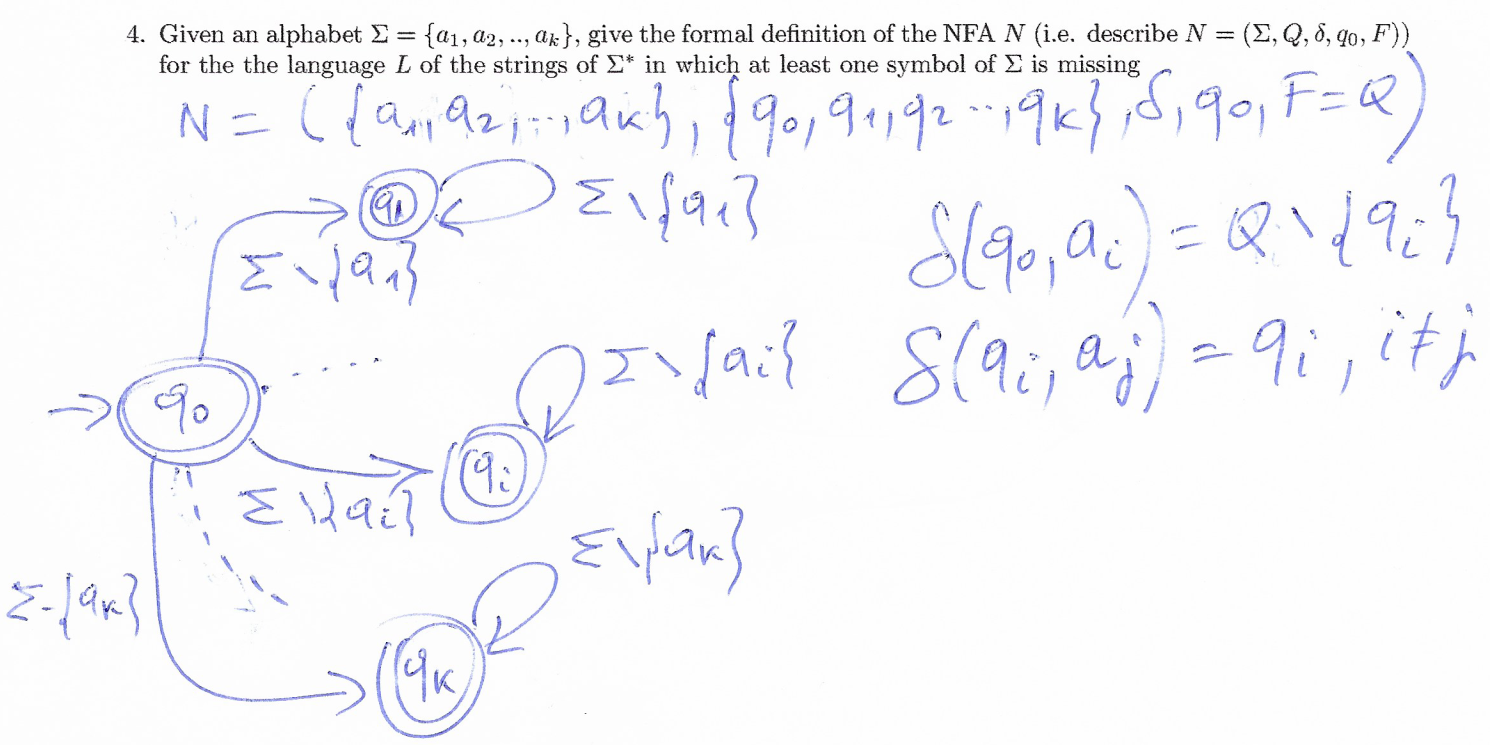 4. Given an alphabet Σ = {a₁, a₂, .., aₖ}, give the formal definition of the NFA N (i.e. describe N = (Σ, Q, δ, q₀, F))
for the the language L of the strings of Σ* in which at least one symbol of Σ is missing
N = ({a₁, a₂, ..., aₖ}, {q₀, q₁, q₂ ..., qₖ}, δ, q₀, F=Q)
q₁ Σ\{a₁}
Σ\{a₁}
δ(q₀, aᵢ) = Q \ {qᵢ}
Σ\{aᵢ}
δ(qᵢ, aⱼ) = qᵢ, i≠j
q₀
qᵢ
Σ\{aᵢ}
Σ\{aₖ}
Σ-{aₖ}
qₖ